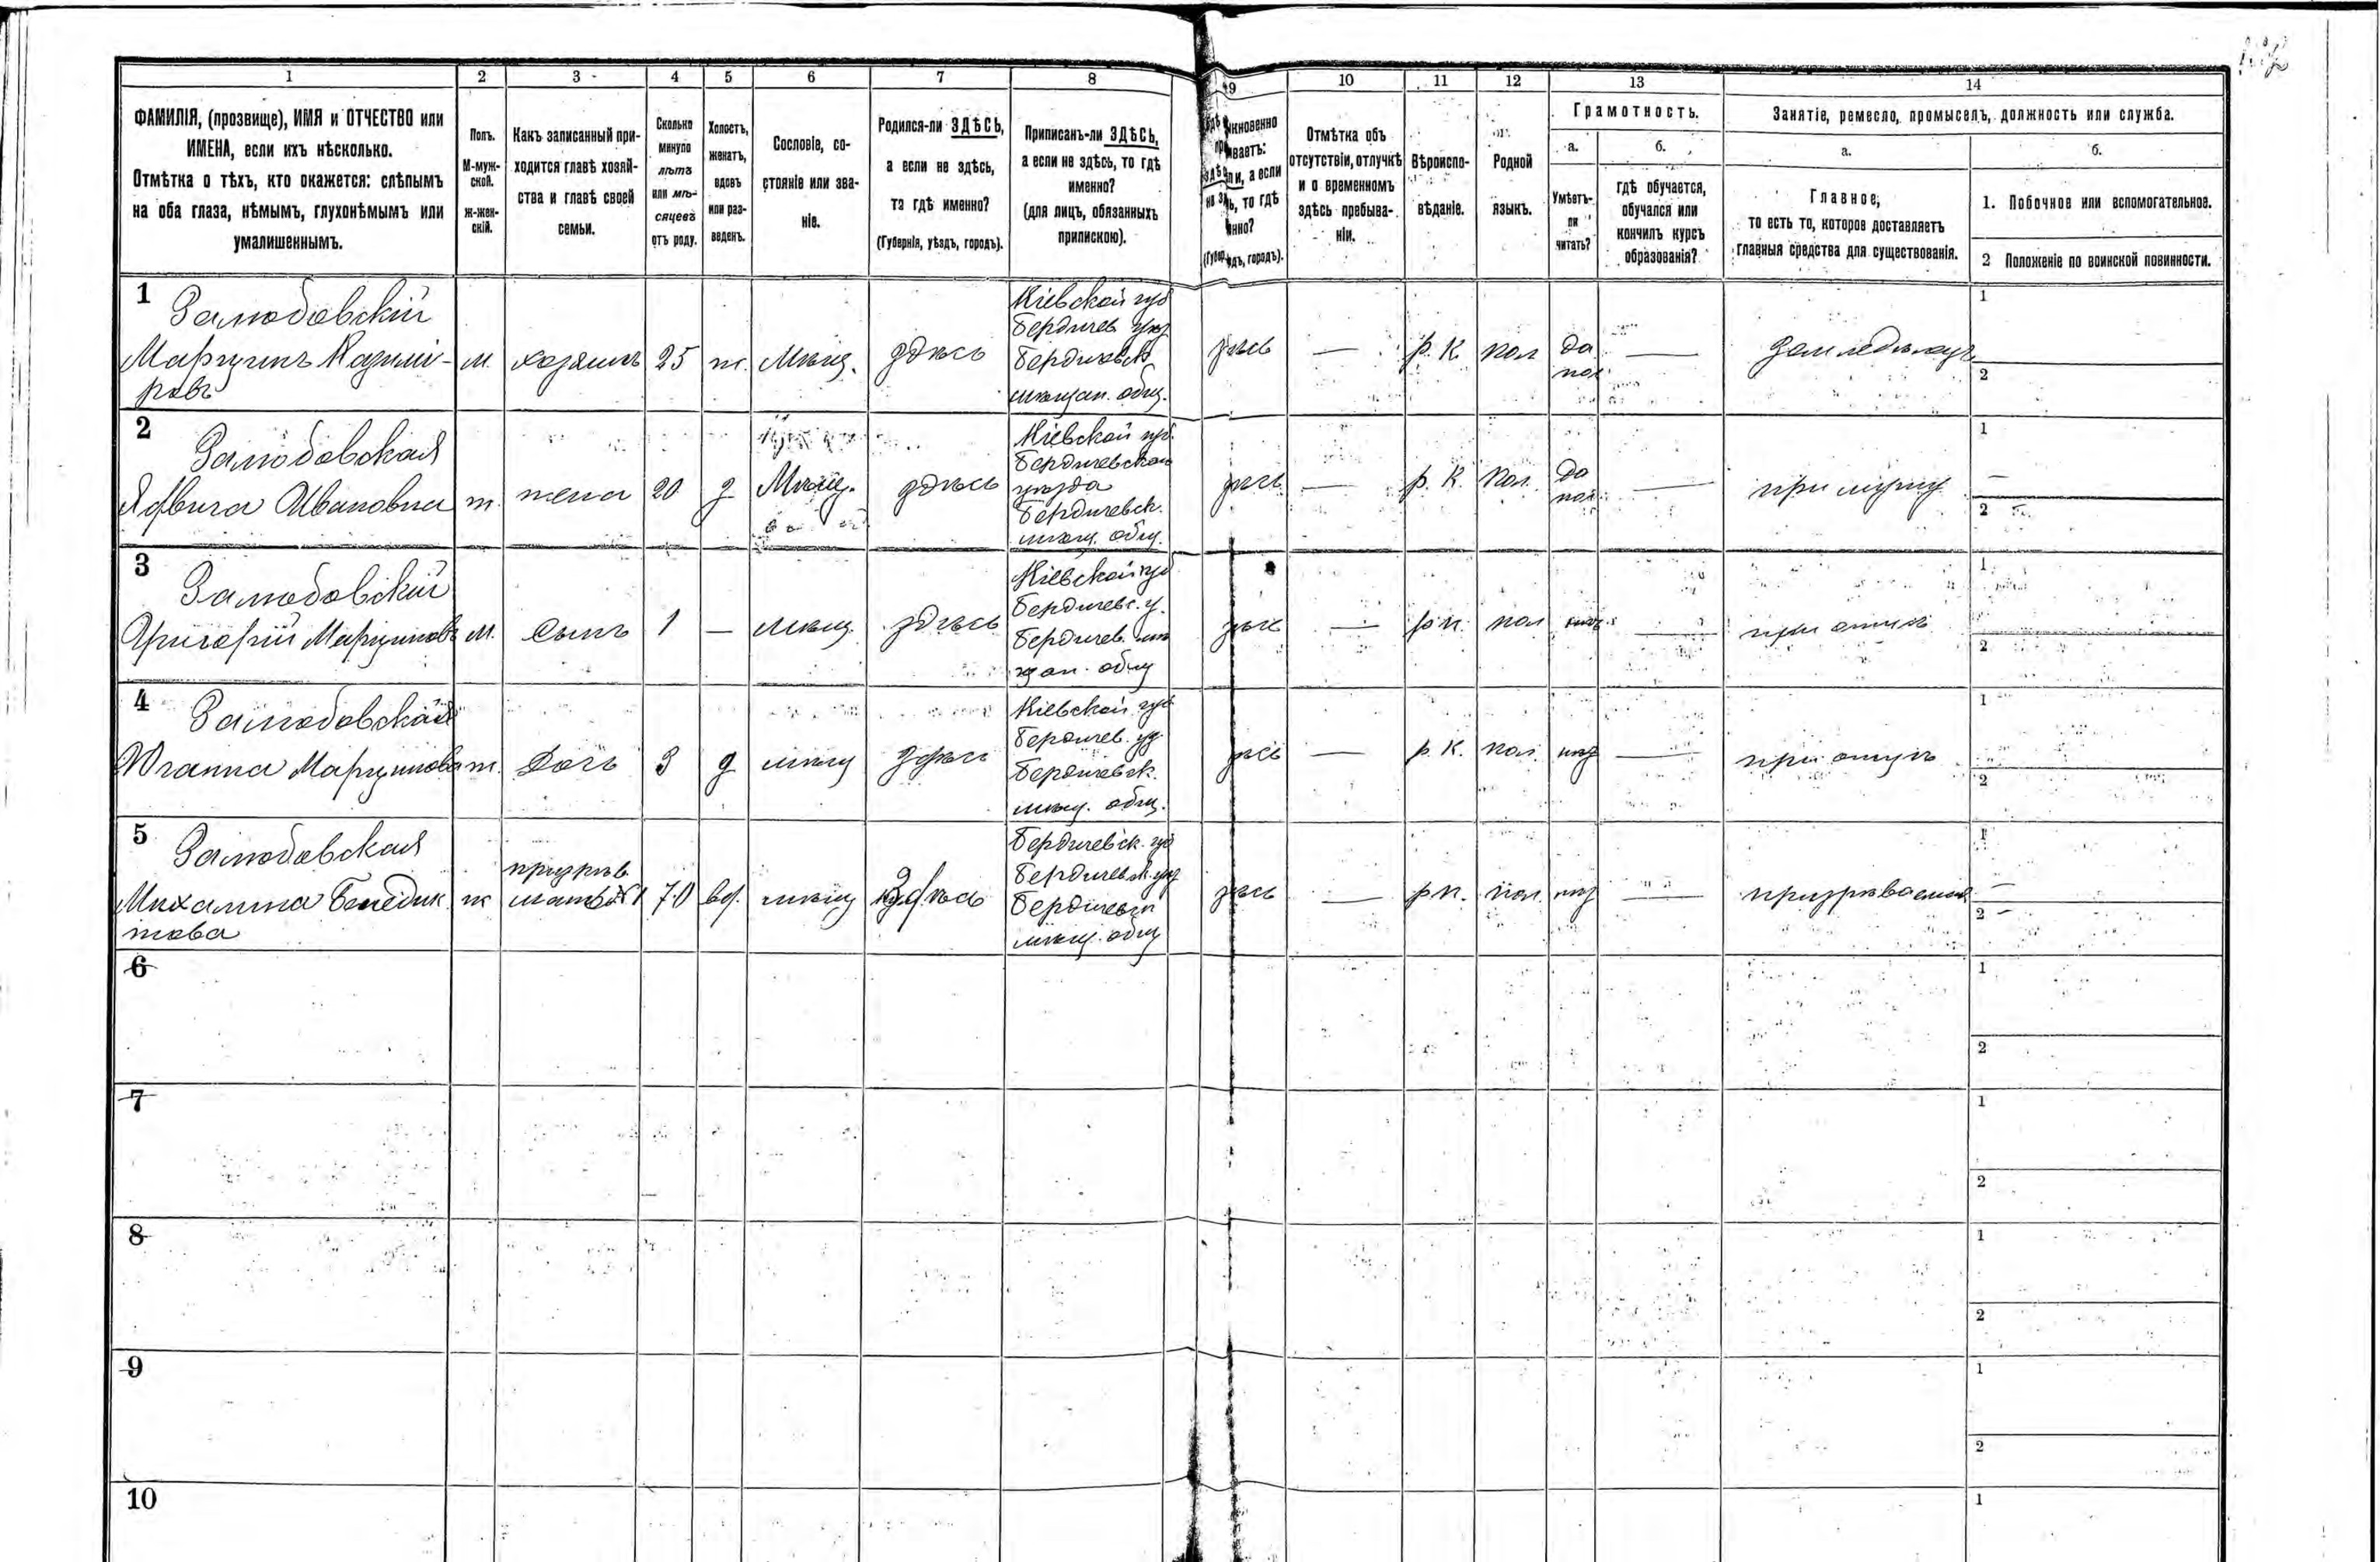 1 2 3 4 5 6 7 8 9 10 11 12 13 14
ФАМИЛІЯ, (прозвище), ИМЯ и ОТЧЕСТВО или
ИМЕНА, если ихъ нѣсколько.
Отмѣтка о тѣхъ, кто окажется: слѣпымъ
на оба глаза, нѣмымъ, глухонѣмымъ или
умалишеннымъ.
Полъ.
М-муж-
ской.
Ж-жен-
скій.
Какъ записанный при-
ходится главѣ хозяй-
ства и главѣ своей
семьи.
Сколько
минуло
лѣтъ
или мѣ-
сяцевъ
отъ роду.
Холостъ,
женатъ,
вдовъ
или раз-
веденъ.
Сословіе, со-
стояніе или зва-
ніе.
Родился-ли ЗДѢСЬ,
а если не здѣсь,
то гдѣ именно?
(Губернія, уѣздъ, городъ).
Приписанъ-ли ЗДѢСЬ,
а если не здѣсь, то гдѣ
именно?
(для лицъ, обязанныхъ
припискою).
ли, а если
то гдѣ
городъ).
Отмѣтка объ
отсутствіи, отлучкѣ
и о временномъ
здѣсь пребыва-
ніи.
Вѣроиспо-
вѣданіе.
Родной
языкъ.
Грамотность.
а.
Умѣетъ-
ли
читать?
б.
гдѣ обучается,
обучался или
кончилъ курсъ
образованія?
Занятіе, ремесло, промыселъ, должность или служба.
а.
Главное,
то есть то, которое доставляетъ
главныя средства для существованія.
б.
1. Побочное или вспомогательное.
2 Положеніе по воинской повинности.
1
Залюбовскій
Марцинъ Казими-
ровъ
м. хозяинъ 25 ж. Мѣщ. здѣсь
Кіевской губ
Бердичев уѣз
Бердичевск
мѣщан. общ.
здѣсь — р. К. пол да
пол — земледѣлецъ
1
2
2
Залюбовская
Ядвига Ивановна
ж. жена 20 з Мѣщ. здѣсь
Кіевской губ.
Бердичевскаго
уѣзда
Бердичевск.
мѣщ. общ.
здѣсь — р. К. пол. да
пол. — при мужѣ
1 —
2
3
Залюбовскій
Григорій Марциновъ
м. сынъ 1 — мѣщ. здѣсь
Кіевской губ
Бердичевс. у.
Бердичев. мѣ
щан. общ
здѣсь — р к. пол — при отцѣ
1
2
4
Залюбовская
Юганна Марцинова
ж. дочь 3 д мѣщ здѣсь
Кіевской губ
Бердичев. уѣз
Бердичевск.
мѣщ. общ.
здѣсь — р. К. пол. — при отцѣ
1
2
5
Залюбовская
Михалина Бенедик
това
ж 70 вд. мѣщ здѣсь
Бердичевск. губ
Бердичевск. уѣз
Бердичевск
мѣщ. общ
здѣсь — р к. пол. — призрѣваемая
1 —
2 —
6
1
2
7
1
2
8
1
2
9
1
2
10
1